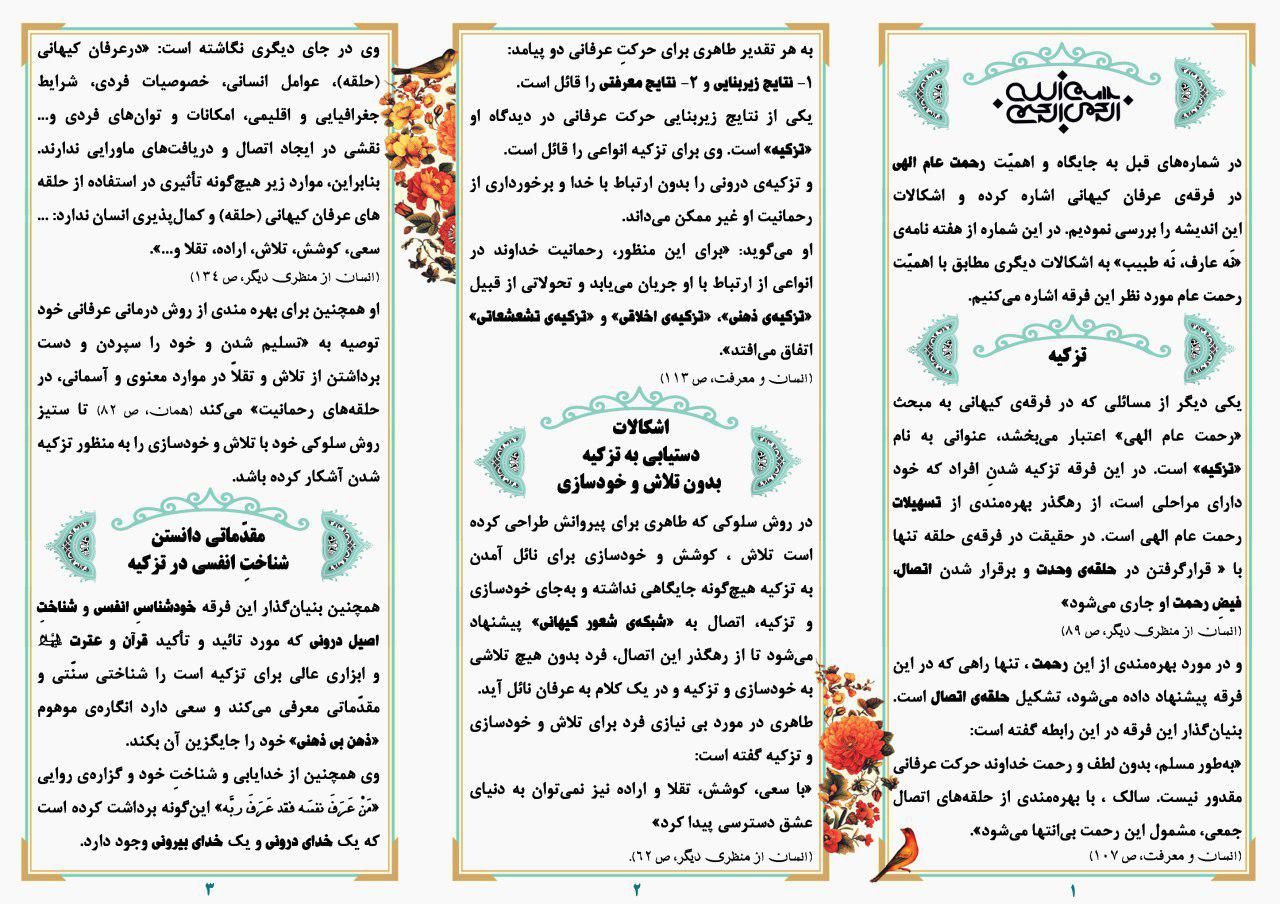 بسم الله الرحمن الرحیم
در شماره‌های قبل به جایگاه و اهمیّت رحمت عام الهی
در فرقه‌ی عرفان کیهانی اشاره کرده و اشکالات
این اندیشه را بررسی نمودیم. در این شماره از هفته نامه‌ی
«نَه عارف، نَه طبیب» به اشکالات دیگری مطابق با اهمیّت
رحمت عام مورد نظر این فرقه اشاره می‌کنیم.
تزکیه
یکی دیگر از مسائلی که در فرقه‌ی کیهانی به مبحث
«رحمت عام الهی» اعتبار می‌بخشد، عنوانی به نام
«تزکیه» است. در این فرقه تزکیه شدنِ افراد که خود
دارای مراحلی است، از رهگذر بهره‌مندی از تسهیلات
رحمت عام الهی است. در حقیقت در فرقه‌ی حلقه تنها
با « قرارگرفتن در حلقه‌ی وحدت و برقرار شدن اتصال،
فیضِ رحمت او جاری می‌شود»
(انسان از منظری دیگر، ص ۸۹)
و در مورد بهره‌مندی از این رحمت ، تنها راهی که در این
فرقه پیشنهاد داده می‌شود، تشکیل حلقه‌ی اتصال است.
بنیان‌گذار این فرقه در این رابطه گفته است:
«به‌طور مسلم، بدون لطف و رحمت خداوند حرکت عرفانی
مقدور نیست. سالک ، با بهره‌مندی از حلقه‌های اتصال
جمعی، مشمول این رحمت بی‌انتها می‌شود».
(انسان و معرفت، ص ۱۰۷)
۱
به هر تقدیر طاهری برای حرکتِ عرفانی دو پیامد:
۱- نتایج زیربنایی و ۲- نتایج معرفتی را قائل است.
یکی از نتایج زیربنایی حرکت عرفانی در دیدگاه او
«تزکیه» است. وی برای تزکیه انواعی را قائل است.
و تزکیه‌ی درونی را بدون ارتباط با خدا و برخورداری از
رحمانیت او غیر ممکن می‌داند.
او می‌گوید: «برای این منظور، رحمانیت خداوند در
انواعی از ارتباط با او جریان می‌یابد و تحولاتی از قبیل
«تزکیه‌ی ذهنی»، «تزکیه‌ی اخلاقی» و «تزکیه‌ی تشعشعاتی»
اتفاق می‌افتد».
(انسان و معرفت، ص ۱۱۳)
اشکالات
دستیابی به تزکیه
بدون تلاش و خودسازی
در روش سلوکی که طاهری برای پیروانش طراحی کرده
است تلاش ، کوشش و خودسازی برای نائل آمدن
به تزکیه هیچ‌گونه جایگاهی نداشته و به‌جای خودسازی
و تزکیه، اتصال به «شبکه‌ی شعور کیهانی» پیشنهاد
می‌شود تا از رهگذر این اتصال، فرد بدون هیچ تلاشی
به خودسازی و تزکیه و در یک کلام به عرفان نائل آید.
طاهری در مورد بی نیازی فرد برای تلاش و خودسازی
و تزکیه گفته است:
«با سعی، کوشش، تقلا و اراده نیز نمی‌توان به دنیای
عشق دسترسی پیدا کرد»
(انسان از منظری دیگر، ص ۶۲).
۲
وی در جای دیگری نگاشته است: «درعرفان کیهانی
(حلقه)، عوامل انسانی، خصوصیات فردی، شرایط
جغرافیایی و اقلیمی، امکانات و توان‌های فردی و...
نقشی در ایجاد اتصال و دریافت‌های ماورایی ندارند.
بنابراین، موارد زیر هیچ‌گونه تأثیری در استفاده از حلقه
های عرفان کیهانی (حلقه) و کمال‌پذیری انسان ندارد: ...
سعی، کوشش، تلاش، اراده، تقلا و...».
(انسان از منظری دیگر، ص ۱۳۴)
او همچنین برای بهره مندی از روش درمانی عرفانی خود
توصیه به «تسلیم شدن و خود را سپردن و دست
برداشتن از تلاش و تقلاّ در موارد معنوی و آسمانی، در
حلقه‌های رحمانیت» می‌کند (همان، ص ۸۲) تا ستیز
روش سلوکی خود با تلاش و خودسازی را به منظور تزکیه
شدن آشکار کرده باشد.
مقدّماتی دانستن
شناختِ انفسی در تزکیه
همچنین بنیان‌گذار این فرقه خودشناسیِ انفسی و شناختِ
اصیل درونی که مورد تائید و تأکید قرآن و عترت علیهم السلام
و ابزاری عالی برای تزکیه است را شناختی سنّتی و
مقدّماتی معرفی می‌کند و سعی دارد انگاره‌ی موهوم
«ذهن بی ذهنی» خود را جایگزین آن بکند.
وی همچنین از خدایابی و شناختِ خود و گزاره‌ی روایی
«مَنْ عَرَفَ نفسَه فقد عَرَفَ ربَّه» این‌گونه برداشت کرده است
که یک خدای درونی و یک خدای بیرونی وجود دارد.
۳